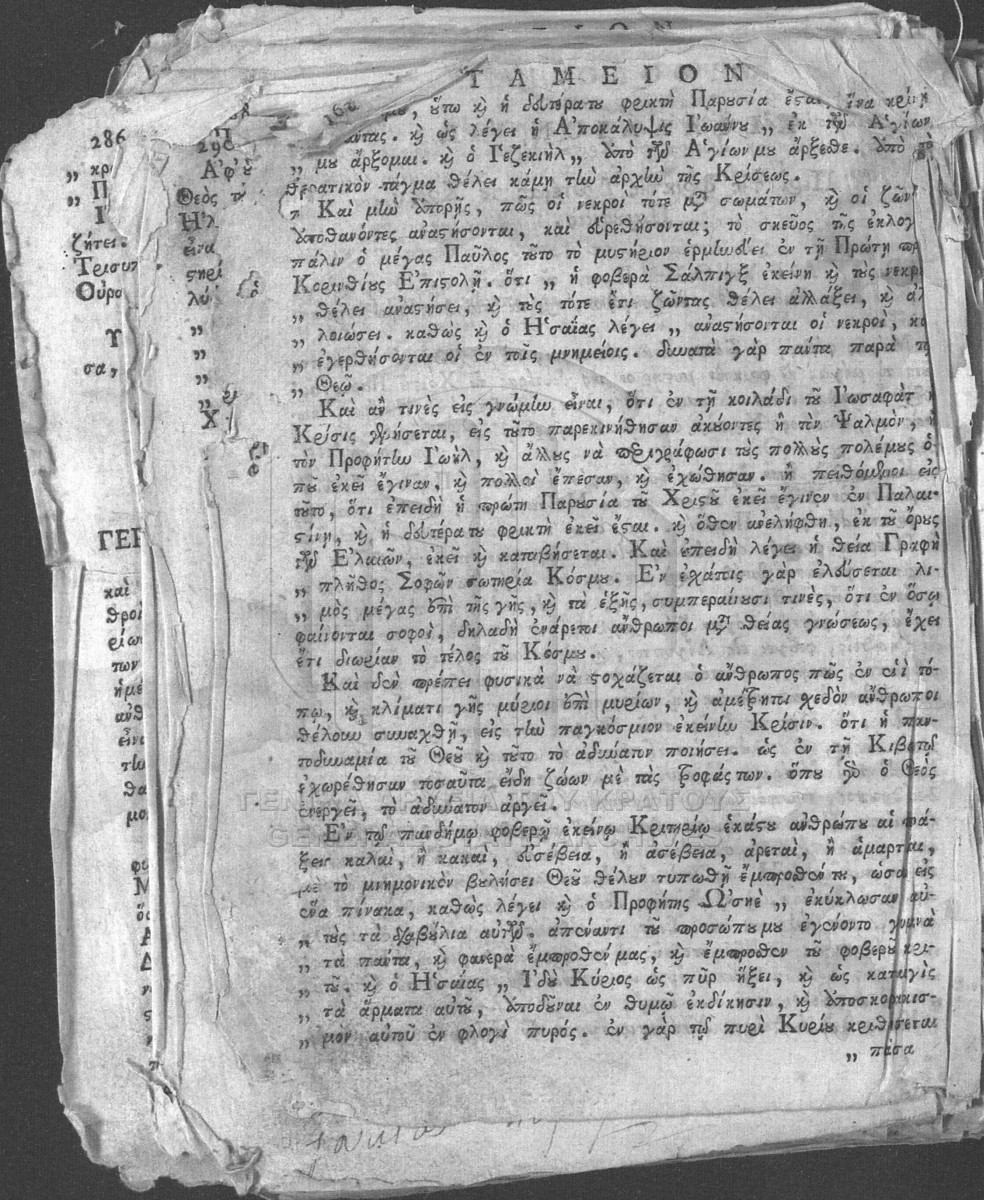 ΤΑΜΕΙΟΝ
286
290
οὕτω κὶ ἡ δευτέρατου φρικτὴ Παρουσία ἔσται, ἵνα κρίνῃ
κὶ ὡς λέγει ἡ Ἀποκάλυψις Ἰωάννου „ ἐκ τῶν Ἁγίων
„ μου ἄρξομαι. κὶ ὁ Ἰεζεκιὴλ „ ἀπὸ τῶν Ἁγίων μου ἄρξεσθε. ἀπὸ τὸ
ἱερατικὸν τάγμα θέλει κάμῃ τὴν ἀρχὴν τῆς Κρίσεως.
Καὶ μὴν ἀπορῇς, πῶς οἱ νεκροὶ τότε μετὰ σωμάτων, κὶ οἱ ζῶντ
ἀποθανόντες ἀναστήσονται, καὶ εὑρεθήσονται; τὸ σκεῦος τῆς ἐκλογ
πάλιν ὁ μέγας Παῦλος τοῦτο τὸ μυστήριον ἑρμηνεύει ἐν τῇ Πρώτῃ πρ
Κορινθίους Ἐπιστολῇ. ὅτι „ ἡ φοβερὰ Σάλπιγξ ἐκείνη κὶ τοὺς νεκρο
„ θέλει ἀναστήσει, κὶ τοὺς τότε ἔτι ζῶντας θέλει ἀλλάξει, κὶ ἀλ
„ λοιώσει. καθὼς κὶ ὁ Ἡσαΐας λέγει „ ἀναστήσονται οἱ νεκροὶ, κα
„ ἐγερθήσονται οἱ ἐν τοῖς μνημείοις. δυνατὰ γὰρ πάντα παρὰ τῷ
„ Θεῷ.
Καὶ ἂν τινὲς εἰς γνώμην εἶναι, ὅτι ἐν τῇ κοιλάδι τοῦ Ἰωσαφὰτ ἡ
Κρίσις γενήσεται, εἰς τοῦτο παρεκινήθησαν ἀκούοντες ἢ τὸν Ψαλμὸν, ἢ
τὸν Προφήτην Ἰωὴλ, κὶ ἄλλους νὰ περιγράφωσι τοὺς πολλοὺς πολέμους ὁ-
ποῦ ἐκεῖ ἔγιναν, κὶ πολλοὶ ἔπεσαν, κὶ ἐχώθησαν. ἢ πειθόμενοι εἰς
τοῦτο, ὅτι ἐπειδὴ ἡ πρώτη Παρουσία τοῦ Χριστοῦ ἐκεῖ ἔγινεν ἐν Παλαι-
στίνῃ, κὶ ἡ δευτέρατου φρικτὴ ἐκεῖ ἔσται. κὶ ὅθεν ἀνελήφθη, ἐκ τοῦ ὄρους
τῶν Ἐλαιῶν, ἐκεῖ κὶ καταβήσεται. Καὶ ἐπειδὴ λέγει ἡ θεία Γραφὴ
„ πλῆθος Σοφῶν σωτηρία Κόσμου. Ἐν ἐσχάταις γὰρ ἐλεύσεται λι-
„ μὸς μέγας ἐπὶ τῆς γῆς, κὶ τὰ ἑξῆς, συμπεραίνουσι τινὲς, ὅτι ἐν ὅσῳ
φαίνονται σοφοὶ, δηλαδὴ ἐνάρετοι ἄνθρωποι μετὰ θείας γνώσεως, ἔχει
ἔτι διωρίαν τὸ τέλος τοῦ Κόσμου.
Καὶ δὲν πρέπει φυσικὰ νὰ στοχάζεται ὁ ἄνθρωπος πῶς ἐν ἑνὶ τό-
πῳ, κὶ κλίματι γῆς μύριοι ἐπὶ μυρίων, κὶ ἀμέτρητοι σχεδὸν ἄνθρωποι
θέλουν συναχθῇ, εἰς τὴν παγκόσμιον ἐκείνην Κρίσιν. ὅτι ἡ παν-
τοδυναμία τοῦ Θεοῦ κὶ τοῦτο τὸ ἀδύνατον ποιήσει. ὡς ἐν τῇ Κιβωτῷ
ἐχωρέθησαν τοσαῦτα εἴδη ζώων μὲ τὰς τροφάς των. ὅπου γὰρ ὁ Θεὸς
ἐνεργεῖ, τὸ ἀδύνατον ἀργεῖ.
Ἐν τῷ πανδήμῳ φοβερῷ ἐκείνῳ Κριτηρίῳ ἑκάστου ἀνθρώπου αἱ πρά-
ξεις καλαὶ, ἢ κακαὶ, εὐσέβεια, ἢ ἀσέβεια, ἀρεταὶ, ἢ ἁμαρτίαι,
μὲ τὸ μνημονικὸν βουλήσει Θεοῦ θέλουν τυπωθῇ ἔμπροσθέν τε, ὡσὰν εἰς
ἕνα πίνακα, καθὼς λέγει κὶ ὁ Προφήτης Ὡσηὲ „ ἐκύκλωσαν αὐ-
„ τοὺς τὰ διαβούλια αὐτῶν. ἀπέναντι τοῦ προσώπου μου ἐγένοντο γυμνὰ
„ τὰ πάντα, κὶ φανερὰ ἔμπροσθέν μας, κὶ ἔμπροσθεν τοῦ φοβεροῦ κρι-
„ τοῦ. κὶ ὁ Ἡσαΐας „ Ἰδοὺ Κύριος ὡς πῦρ ἥξει, κὶ ὡς καταιγὶς
„ τὰ ἅρματα αὐτοῦ, ἀποδοῦναι ἐν θυμῷ ἐκδίκησιν, κὶ ἀποσκορακισ-
„ μὸν αὐτοῦ ἐν φλογὶ πυρός. ἐν γὰρ τῷ πυρὶ Κυρίου κριθήσεται
„ πᾶσα